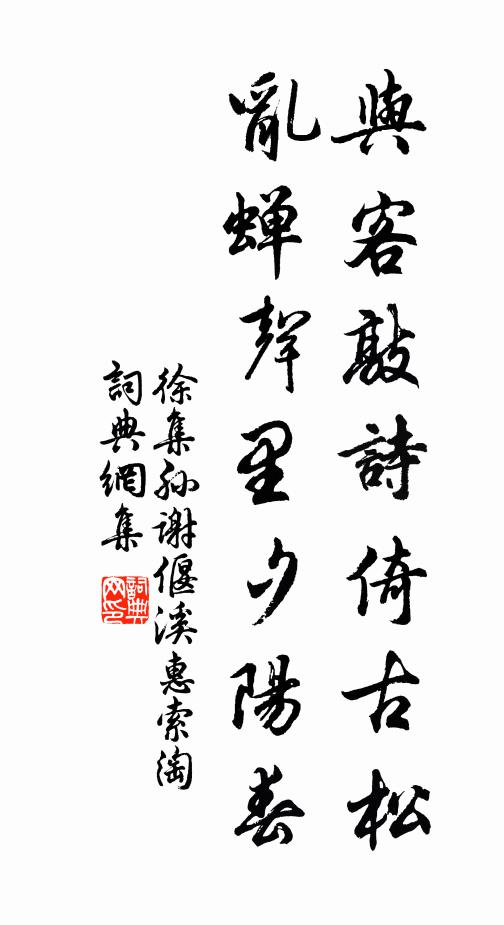 與客敲詩倚古松
亂蟬聲里夕陽舂
徐集孫謝偃溪惠索淘
詞典網集
詞典网印